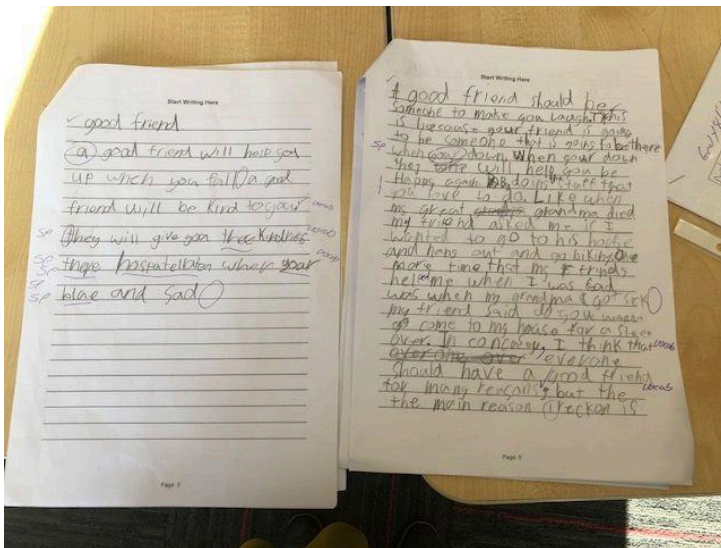 Start Writing Here
good friend
a good friend will help you
up when you fall a good
friend will be kind to you
vocab
sp
they will give you there kindness
vocab
sp
there hospatellaten when your
vocab
sp
sp
blae and sad
Page 5
Start Writing Here
A good friend should be
someone to make you laugh. This
is because your friend is going
to be someone that is going to be there
sp
when you down. When your down
they will help you be
Happy again doing stuff that
you love to do. Like when
my great grandma died
my friend asked me if I
wanted to go to his house
and hang out and go biking. One
more time that my friends
helped me when I was sad
was when my grandma got sick
my friend said do you wanna
come to my house for a sleep
over. In I think that
vocab
over one over everyone
should have a good friend
for many reasons, but the
vocab
the main reason i reckon is
Page 5